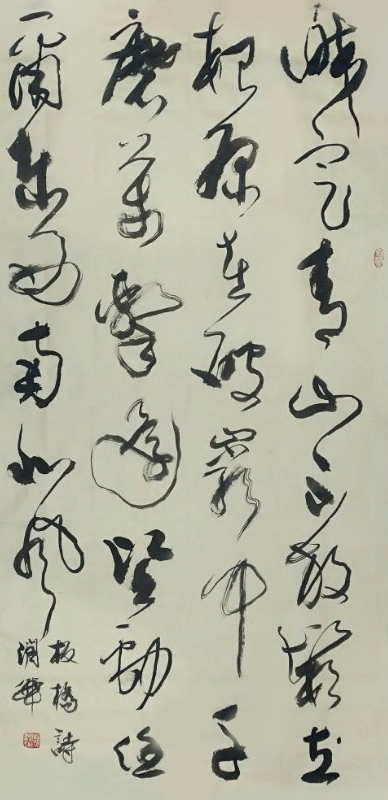 咬定青山不放鬆立
根原在破巖中千
磨萬擊還堅勁任
爾東西南北風
板橋詩